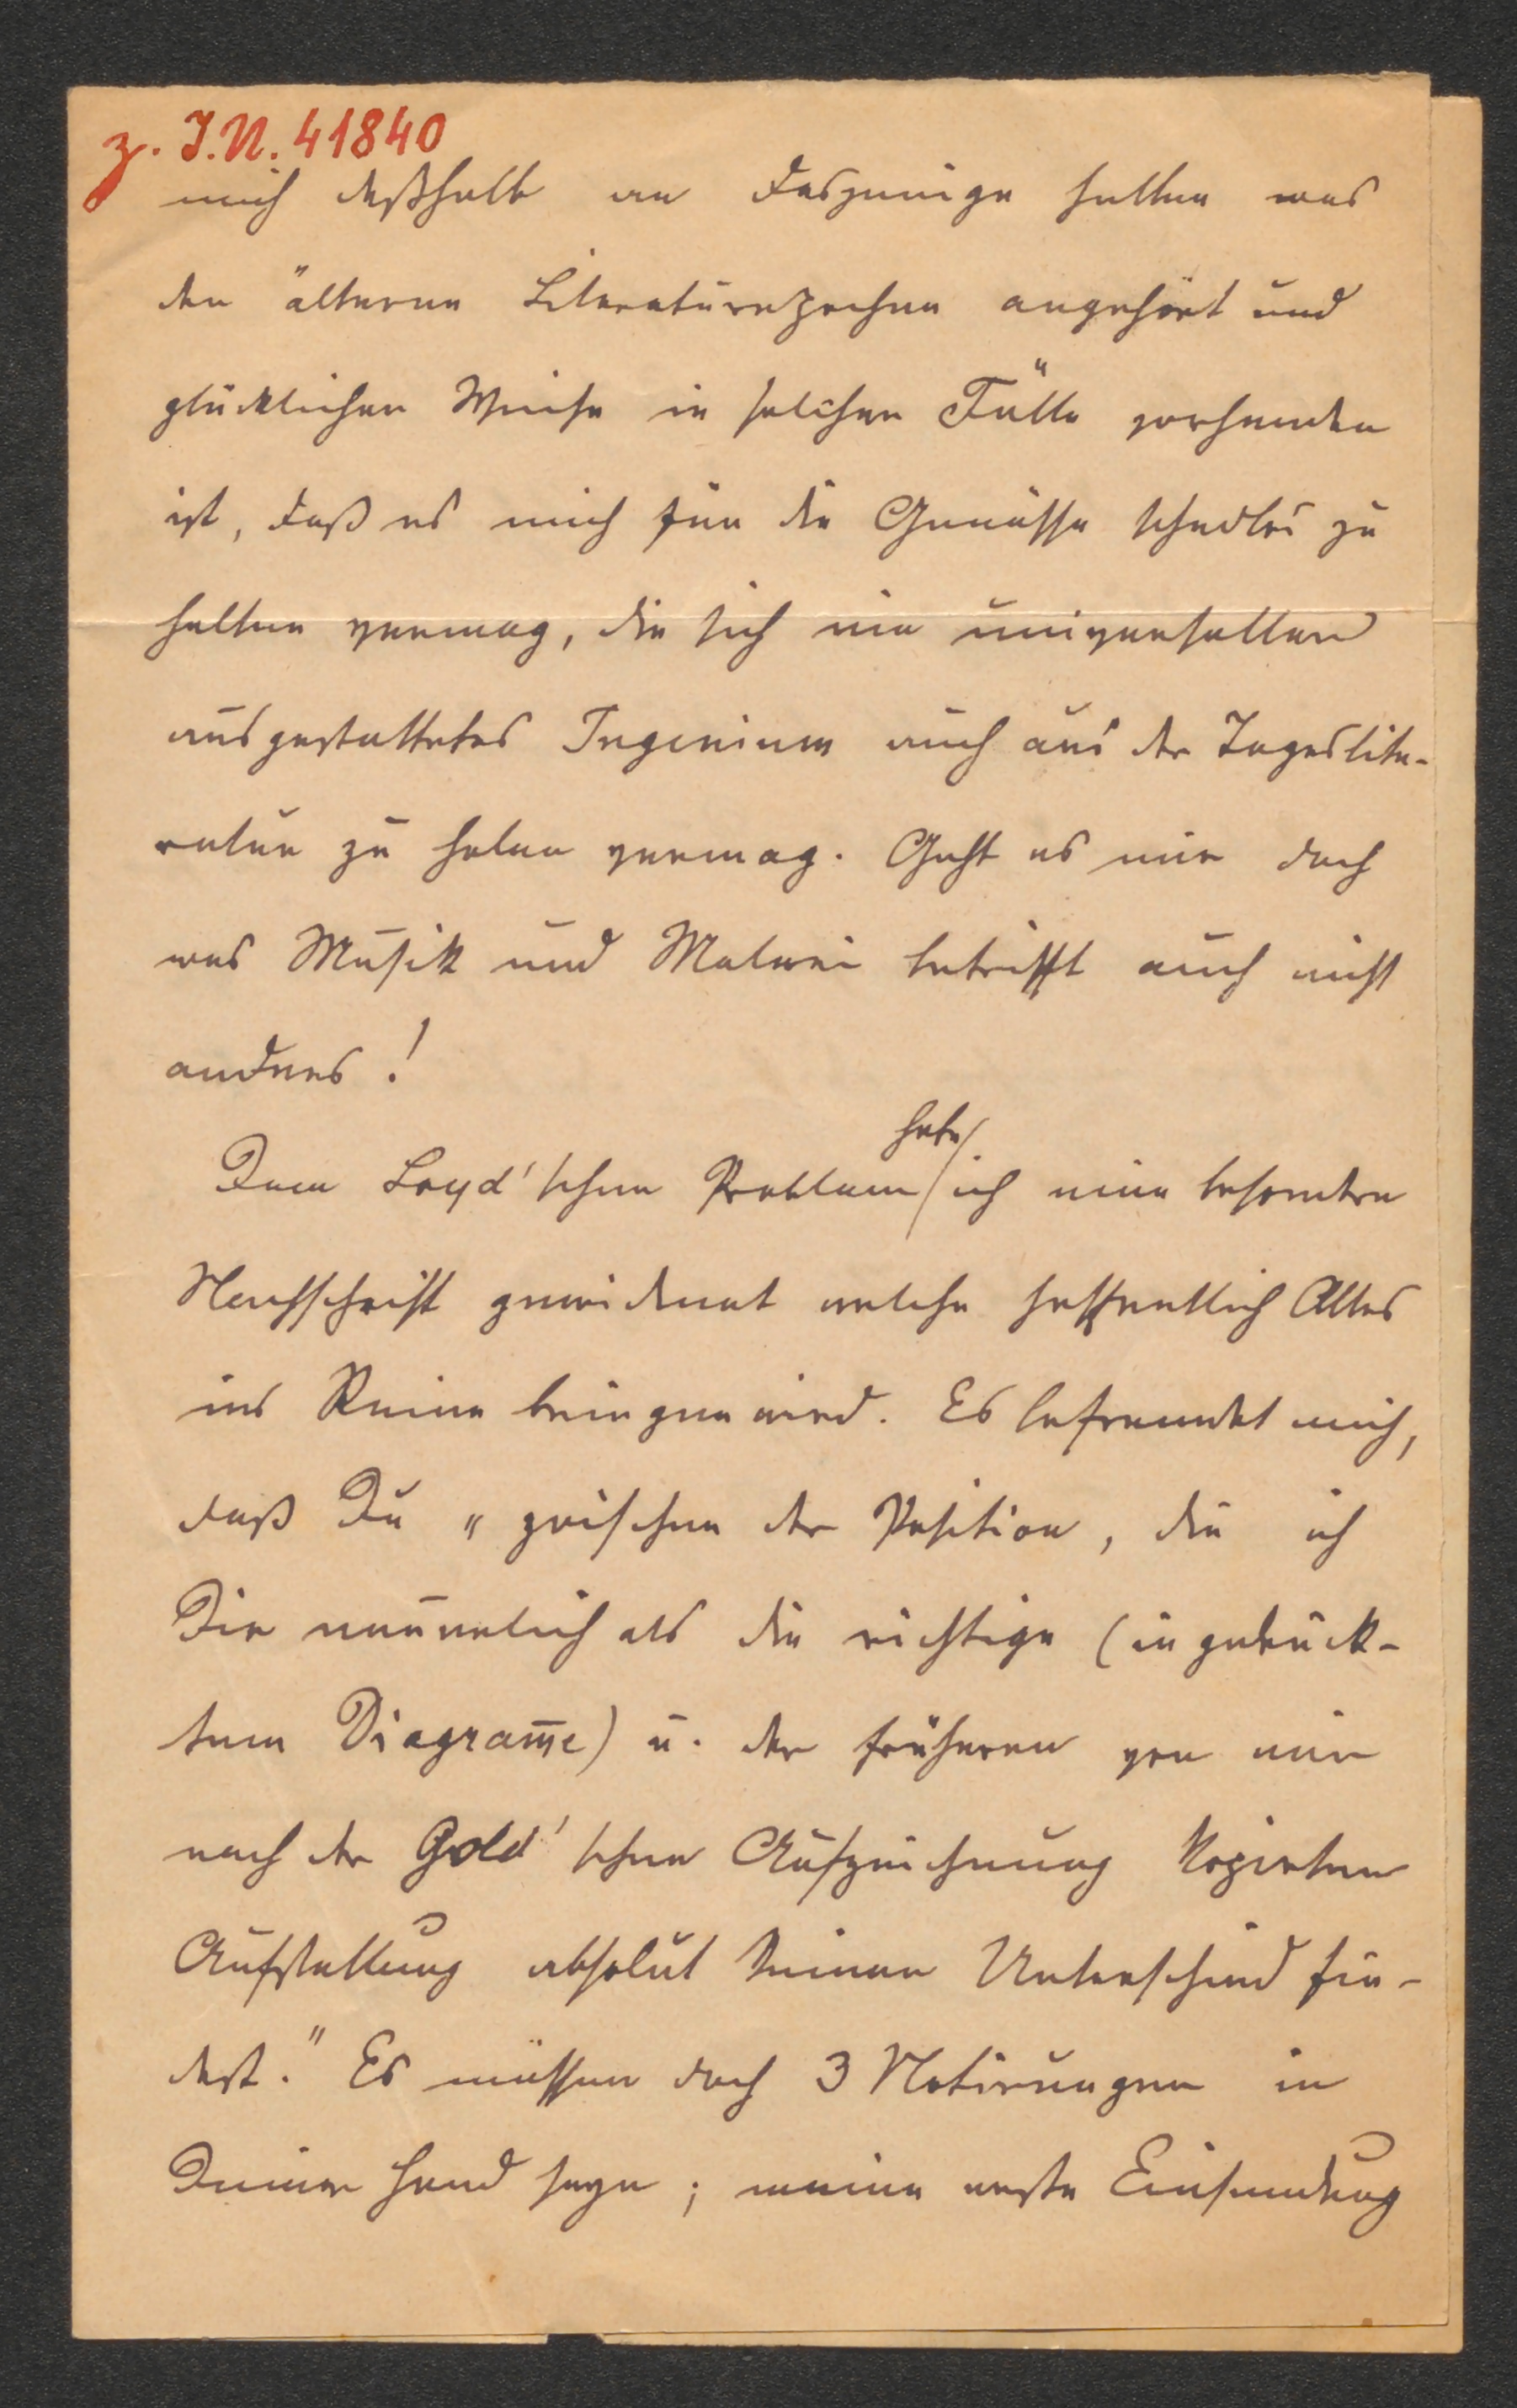 z. I.N. 41840
mich deßhalb an dasjenige halten was
den älteren Literaturepochen angehört und
glücklicher Weise in solcher Fülle vorhanden
ist, daß es mich für die Genüsse schadlos zu
halten vermag, die sich ein universeller
ausgestattetes Ingenium auch aus der Tageslite-
ratur zu holen vermag. Geht es mir doch
was Musik und Malerei betrifft auch nicht
anders!
Dem Loyd'schen Problem habe ich eine besondere
Nachschrift gewidmet welche hoffentlich Alles
ins Reine bringen wird. Es befremdet mich,
daß Du "zwischen der Position, die ich
Dir neuerlich als die richtige (in gedruck-
tem Diagram̅e) u. der früheren von mir
nach der Gold'schen Aufzeichnung kopirten
Aufstellung absolut keinen Unterschied fin-
dest." Es müssen doch 3 Notirungen in
Deiner Hand seyn; meine erste Einsendung